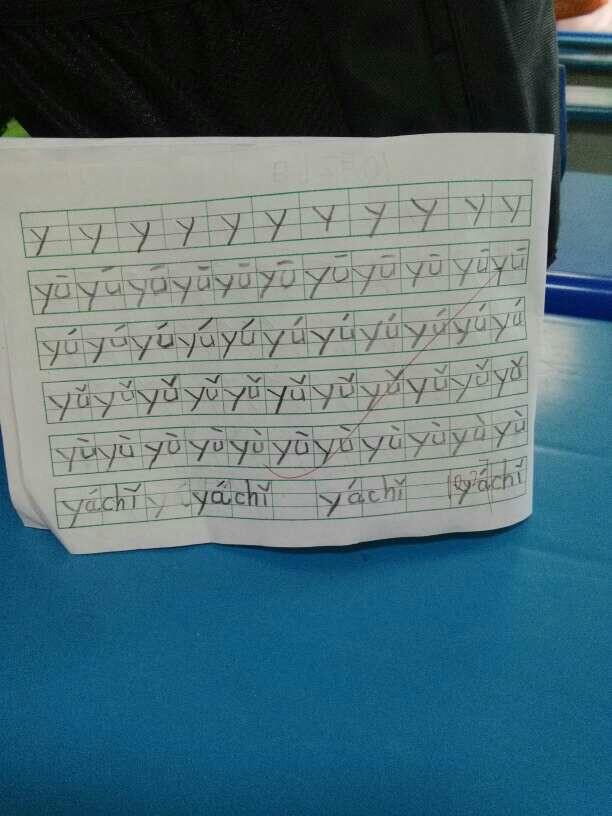 y y y y y y y y y y y
yū yū yū yū yū yū yū yū yū yū yū
yú yú yú yú yú yú yú yú yú yú yú
yǔ yǔ yǔ yǔ yǔ yǔ yǔ yǔ yǔ yǔ yǔ
yù yù yù yù yù yù yù yù yù yù yù
yáchǐ yáchǐ yáchǐ yáchǐ